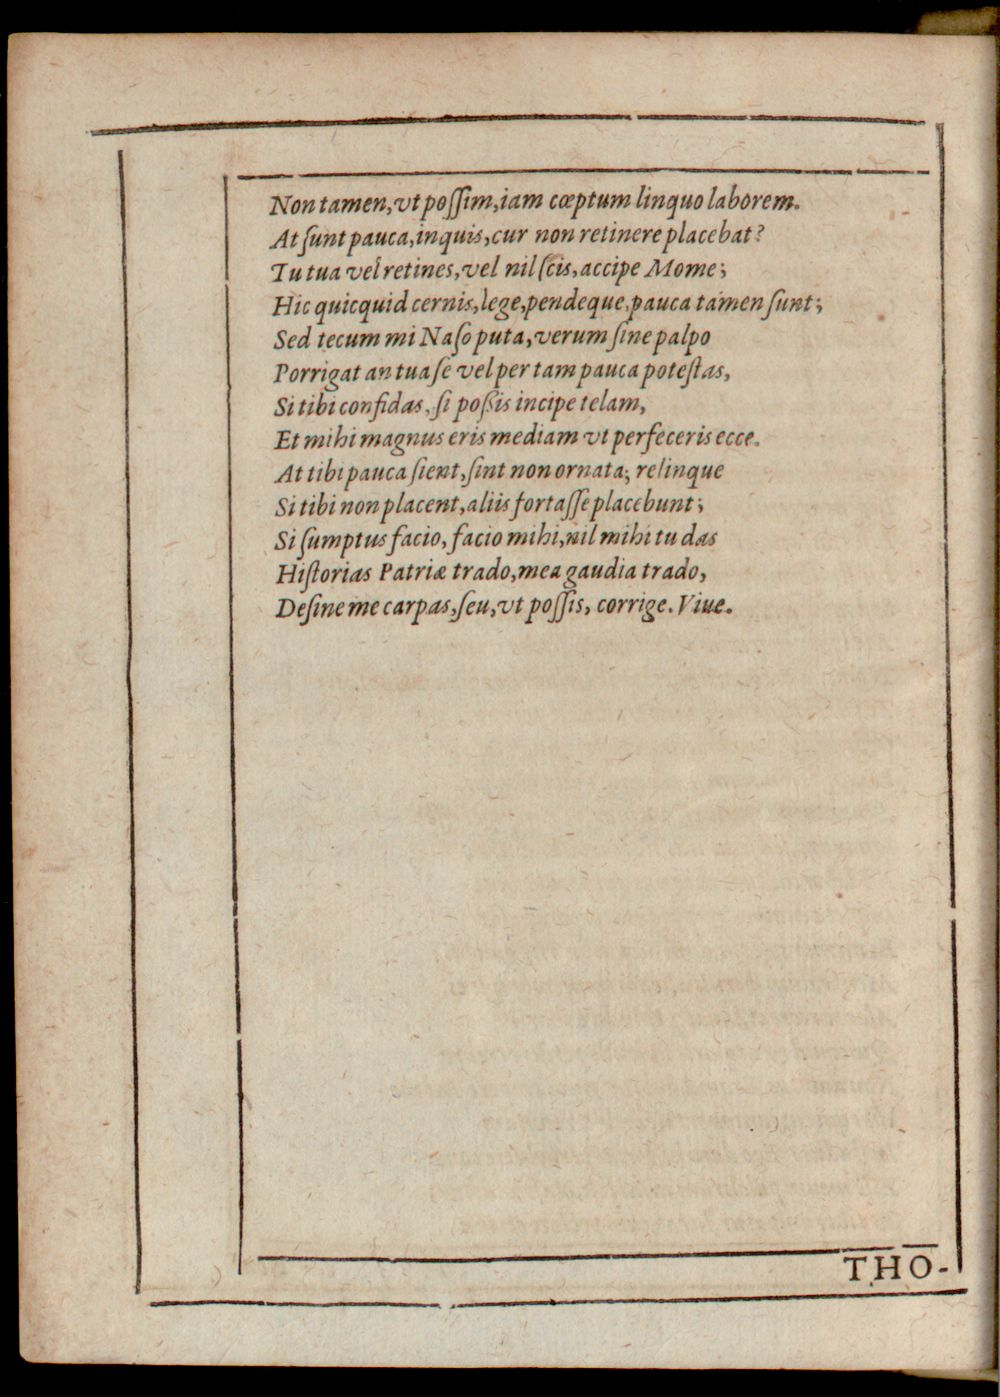 Non tamen, vt poſſim, iam cœptum linquo laborem.
At ſunt pauca, inquis, cur non retinere placebat?
Tu tua vel retines, vel nil ſcis, accipe Mome;
Hic quicquid cernis, lege, pendeque, pauca tamen ſunt;
Sed tecum mi Naſo puta, verum ſine palpo
Porrigat an tua ſe vel per tam pauca poteſtas,
Si tibi confidas, ſi poßis incipe telam,
Et mihi magnus eris mediam vt perfeceris ecce.
At tibi pauca ſient, ſint non ornata; relinque
Si tibi non placent, aliis fortaſſe placebunt;
Si ſumptus facio, facio mihi, nil mihi tu das
Hiſtorias Patriæ trado, mea gaudia trado,
Deſine me carpas, ſeu, vt poſſis, corrige. Viue.
THO-